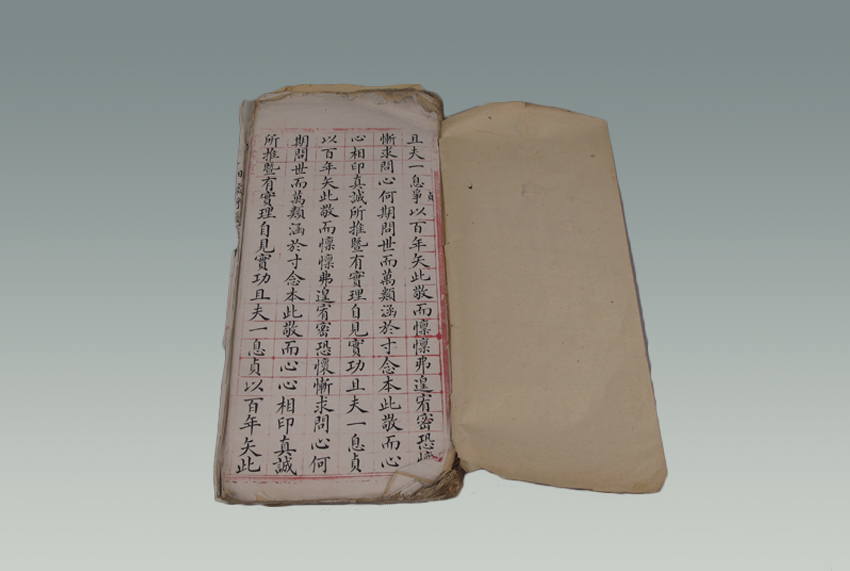 且夫一息爭以百年矢此敬而懍懍弗遑宥密恐
貞
慚求問心何期問世而萬類涵於寸念本此敬而心
心相印真誠所推暨有實理自見實功且夫一息貞
以百年矢此敬而懍懍弗遑宥密恐懷慚求問心何
期問世而萬類涵於寸念本此敬而心心相印真誠
所推暨有實理自見實功且夫一息貞以百年矢此